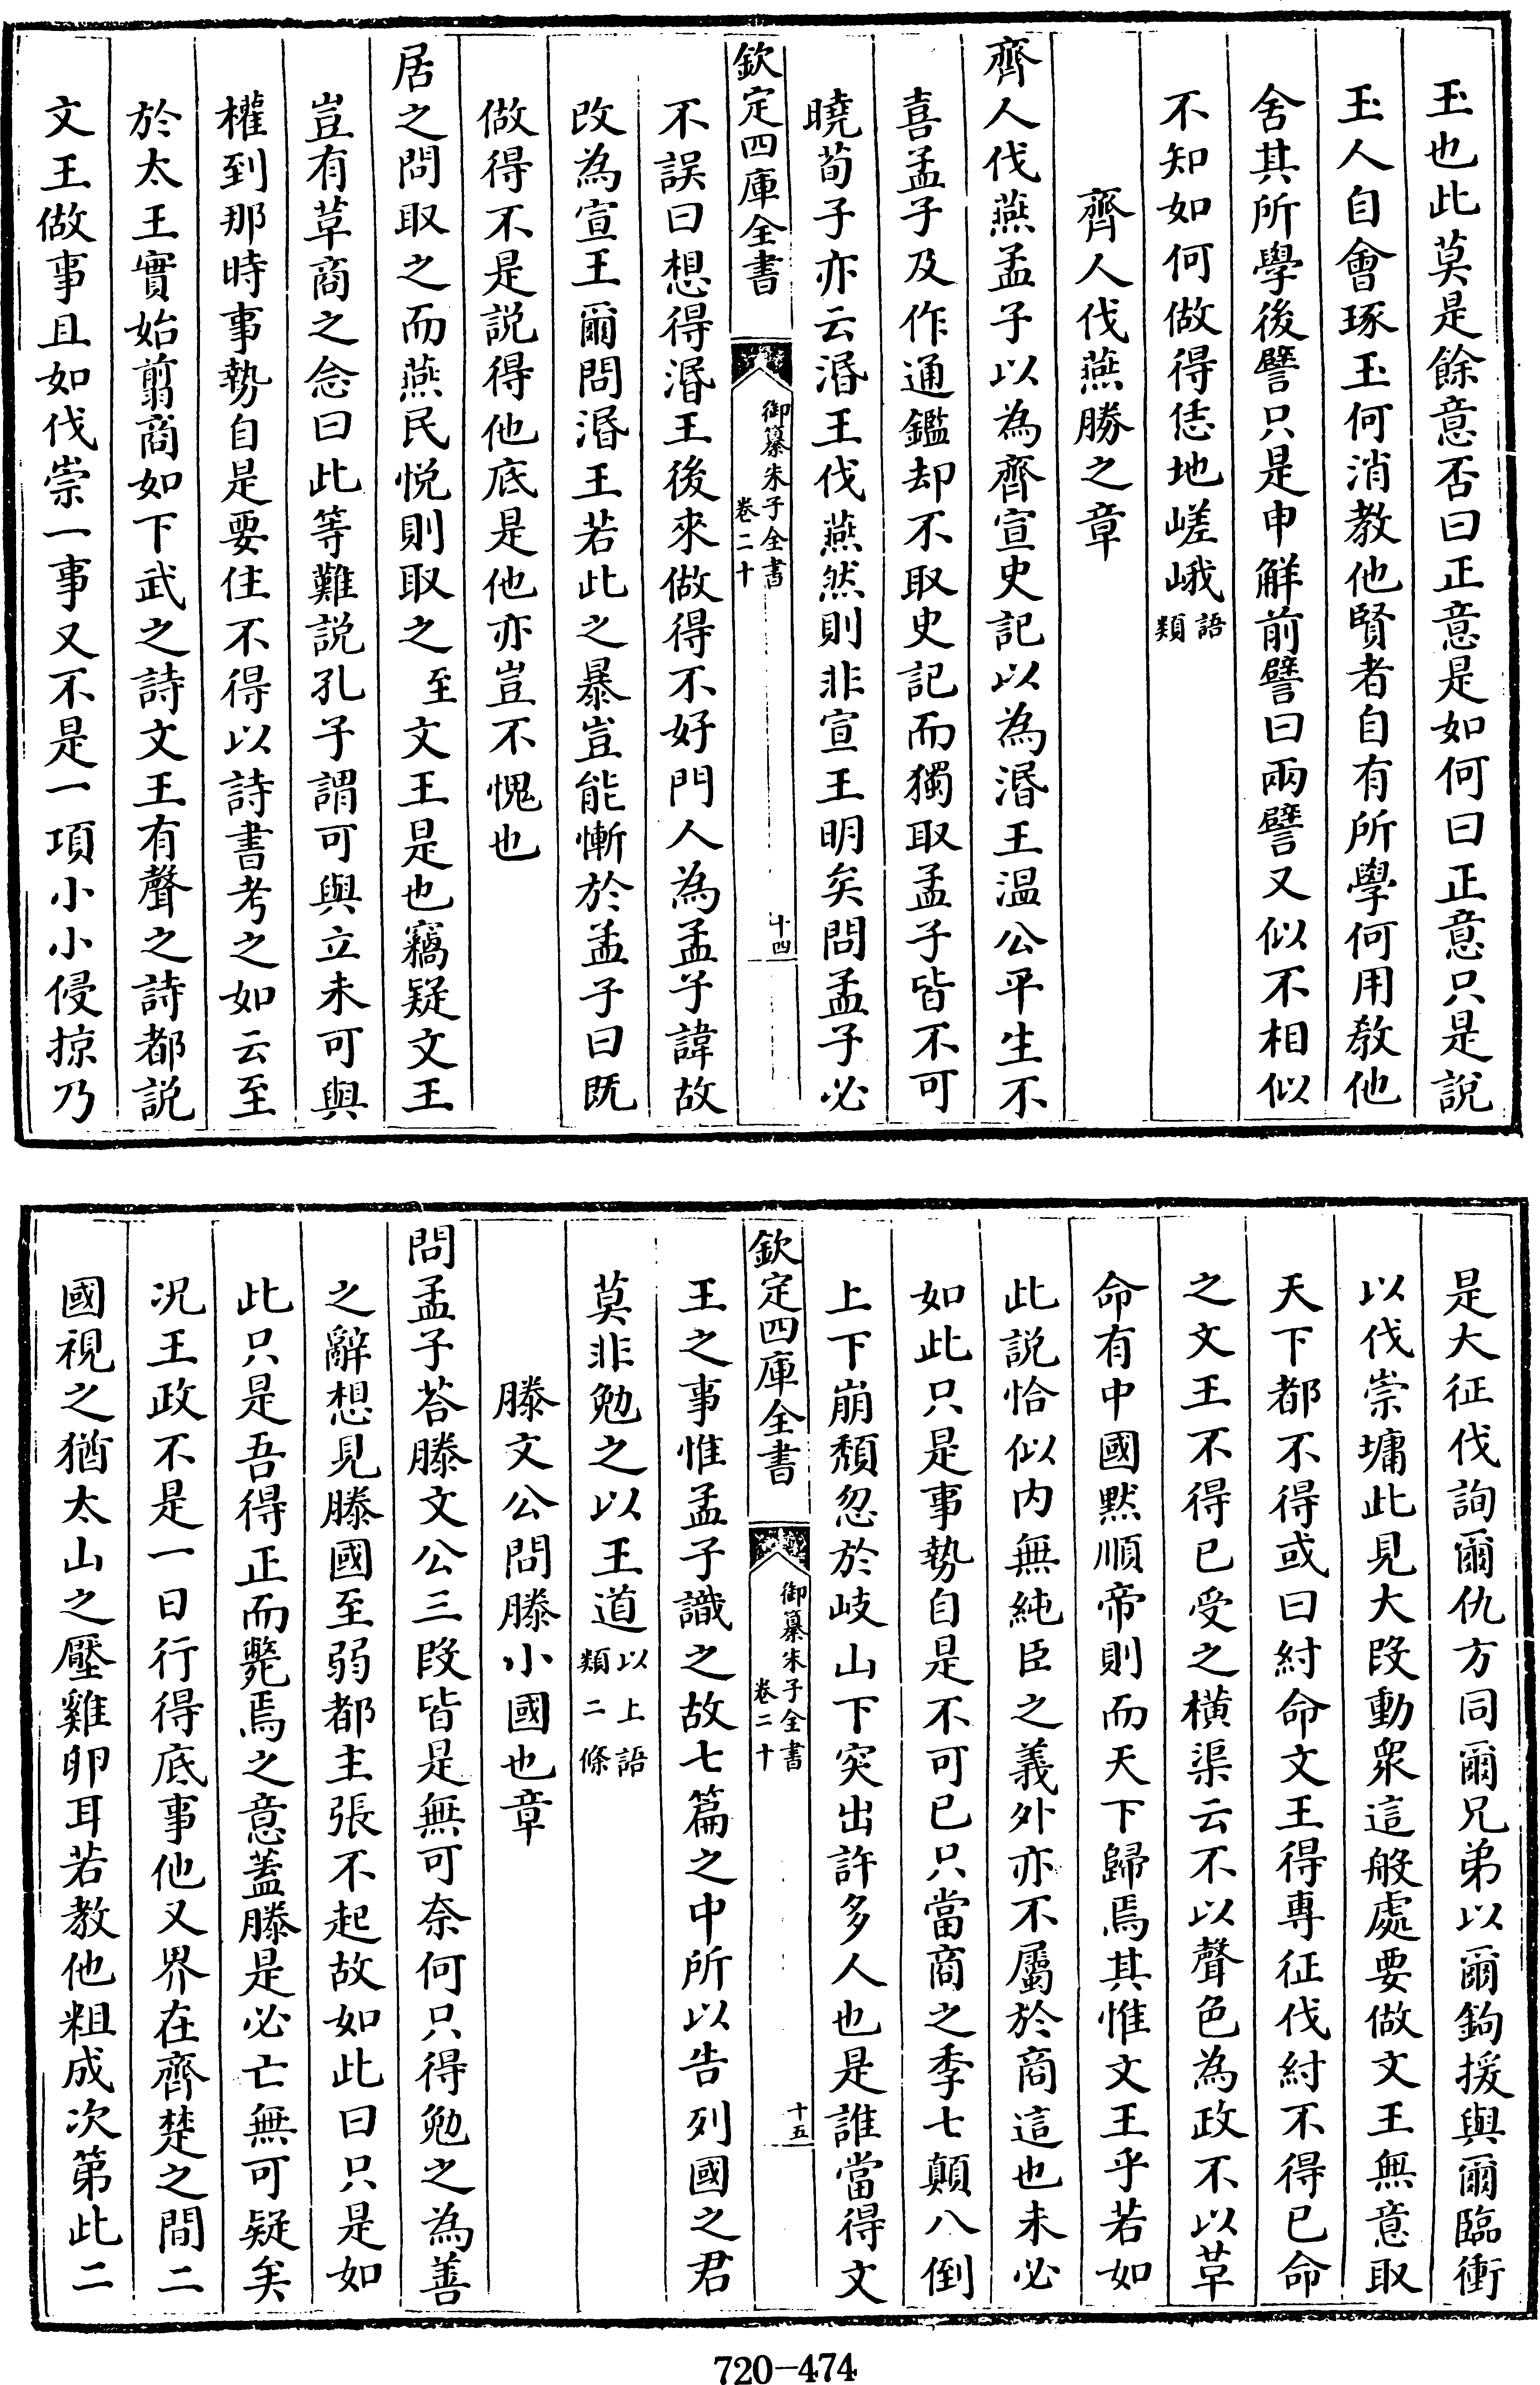 玉也此莫是餘意否曰正意是如何曰正意只是說
玉人自會琢玉何消教他賢者自有所學何用教他
舍其所學後譬只是申解前譬曰兩譬又似不相似
不知如何做得恁地嵯峨語類
齊人伐燕勝之章
齊人伐燕孟子以為齊宣史記以為湣王温公平生不
喜孟子及作通鑑却不取史記而獨取孟子皆不可
曉荀子亦云湣王伐燕然則非宣王明矣問孟子必
欽定四庫全書
御纂朱子全書
卷二十
十四
不誤曰想得湣王後來做得不好門人為孟子諱故
改為宣王爾問湣王若此之暴豈能慚於孟子曰既
做得不是說得他底是他亦豈不愧也
居之問取之而燕民悅則取之至文王是也竊疑文王
豈有草商之念曰此等難說孔子謂可與立未可與
權到那時事勢自是要住不得以詩書考之如云至
於太王實始翦商如下武之詩文王有聲之詩都說
文王做事且如伐崇一事又不是一項小小侵掠乃
是大征伐詢爾仇方同爾兄弟以爾鉤援與爾臨衝
以伐崇墉此見大段動衆這般處要做文王無意取
天下都不得或曰紂命文王得專征伐紂不得已命
之文王不得已受之橫渠云不以聲色為政不以革
命有中國默順帝則而天下歸焉其惟文王乎若如
此說恰似内無純臣之義外亦不屬於商這也未必
如此只是事勢自是不可已只當商之季七顛八倒
上下崩頹忽於岐山下突出許多人也是誰當得文
欽定四庫全書
御纂朱子全書
卷二十
十五
王之事惟孟子識之故七篇之中所以告列國之君
莫非勉之以王道以上語類二條
滕文公問滕小國也章
問孟子荅滕文公三段皆是無可奈何只得勉之為善
之辭想見滕國至弱都主張不起故如此曰只是如
此只是吾得正而斃焉之意蓋滕是必亡無可疑矣
况王政不是一日行得底事他又界在齊楚之間二
國視之猶太山之壓雞卵耳若教他粗成次第此二
720-474